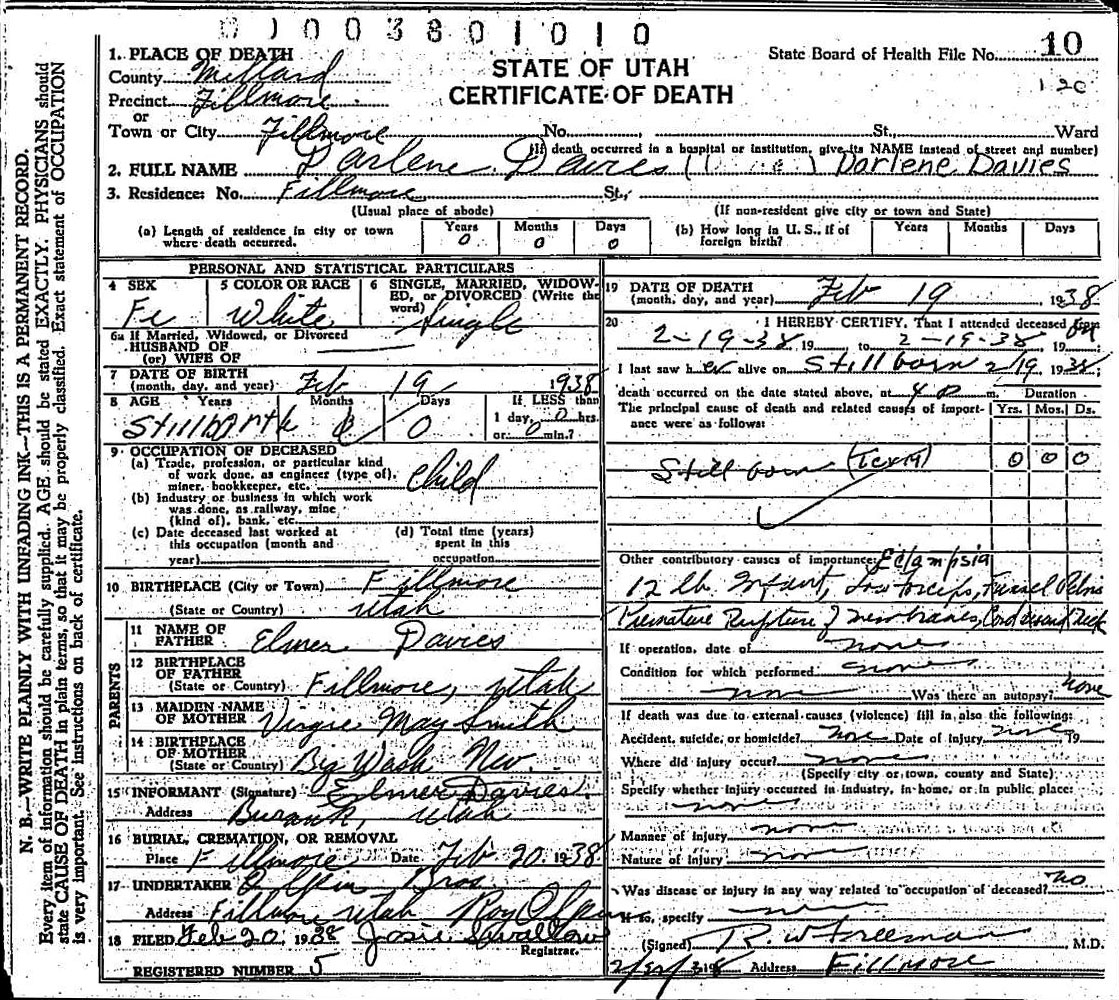 0003801010
1. PLACE OF DEATH
County Millard
Precinct Fillmore
or
Town or City Fillmore No. , St., Ward
STATE OF UTAH
CERTIFICATE OF DEATH
State Board of Health File No. 10
120
(If death occurred in a hospital or institution, give its NAME instead of street and number)
2. FULL NAME Darlene Davies ( ) Darlene Davies
3. Residence: No. Fillmore St.,
(Usual place of abode) (If non-resident give city or town and State)
(a) Length of residence in city or town where death occurred. Years 0 Months 0 Days 0
(b) How long in U. S., if of foreign birth? Years Months Days
PERSONAL AND STATISTICAL PARTICULARS
4 SEX Fe
5 COLOR OR RACE White
6 SINGLE, MARRIED, WIDOWED, or DIVORCED (Write the word) Single
6a If Married, Widowed, or Divorced
HUSBAND OF
(or) WIFE OF
7 DATE OF BIRTH
(month, day, and year) Feb 19 1938
8 AGE Years Months Days If LESS than
Stillbirth 0 0 1 day, 0 hrs.
or 0 min.?
9 OCCUPATION OF DECEASED
(a) Trade, profession, or particular kind
of work done, as engineer (type of),
miner, bookkeeper, etc. Child
(b) Industry or business in which work
was done, as railway, mine
(kind of), bank, etc.
(c) Date deceased last worked at
this occupation (month and
year)
(d) Total time (years)
spent in this
occupation
10 BIRTHPLACE (City or Town) Fillmore
(State or Country) Utah
PARENTS
11 NAME OF
FATHER Elmer Davies
12 BIRTHPLACE
OF FATHER
(State or Country) Fillmore, Utah
13 MAIDEN NAME
OF MOTHER Virgie May Smith
14 BIRTHPLACE
OF MOTHER
(State or Country) Big Wash Nev.
15 INFORMANT (Signature) Elmer Davies
Address Utah
16 BURIAL, CREMATION, OR REMOVAL
Place Fillmore Date Feb 20 1938
17 UNDERTAKER Olpin Bros
Address Fillmore Utah Roy Olpin
18 FILED Feb 20 1938 Josie Swallow
Registrar.
REGISTERED NUMBER 5
19 DATE OF DEATH
(month, day, and year) Feb 19 1938
20 I HEREBY CERTIFY, That I attended deceased from
2-19-38 19 to 2-19-38 19
I last saw her alive on Stillborn 2/19 1938;
death occurred on the date stated above, at 4 P m. Duration
The principal cause of death and related causes of importance were as follows: Yrs. Mos. Ds.
Still born (Term) 0 0 0
Other contributory causes of importance: Eclampsia
12 lb. Infant, Low forceps, Funnel Pelvis
Premature Rupture of membranes, Cord around Neck
If operation, date of none
Condition for which performed none
none Was there an autopsy? none
If death was due to external causes (violence) fill in also the following:
Accident, suicide, or homicide? none Date of injury none 19
Where did injury occur? none
(Specify city or town, county and State)
Specify whether injury occurred in industry, in home, or in public place:
none
Manner of injury none
Nature of injury none
Was disease or injury in any way related to occupation of deceased? no
If so, specify
(Signed) R. W Freeman M.D.
Address Fillmore
N. B.—WRITE PLAINLY WITH UNFADING INK—THIS IS A PERMANENT RECORD.
Every item of information should be carefully supplied. AGE should be stated EXACTLY. PHYSICIANS should
state CAUSE OF DEATH in plain terms, so that it may be properly classified. Exact statement of OCCUPATION
is very important. See instructions on back of certificate.